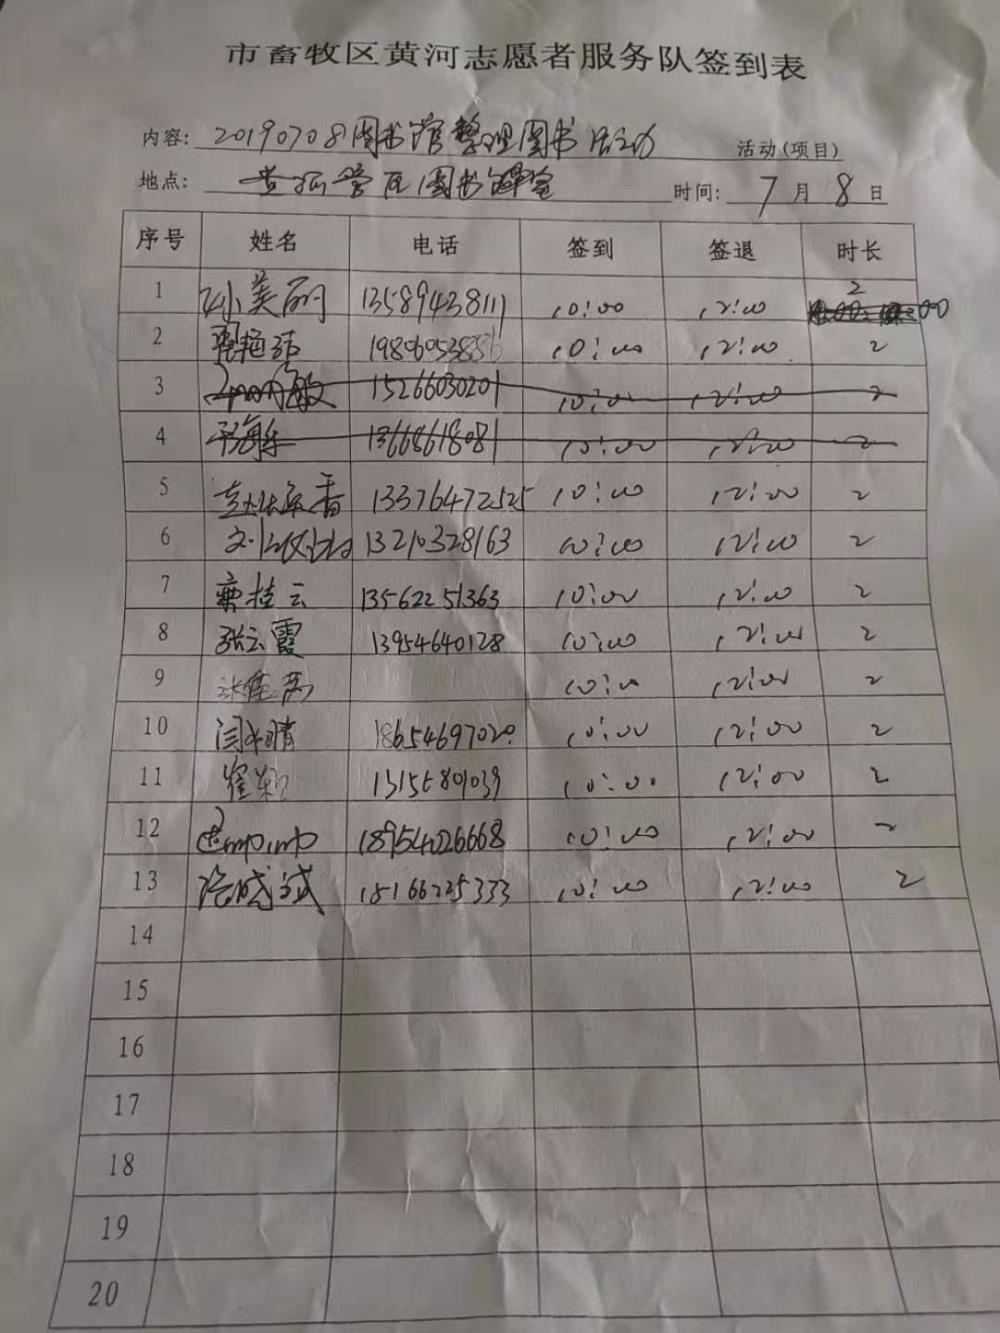 市畜牧区黄河志愿者服务队签到表
内容: 20190708图书馆整理图书活动 活动(项目)
地点: 图书 时间: 7月8日
序号 姓名 电话 签到 签退 时长
1 孙美丽 13589438111 10:00 12:00 2
2 10:00 12:00 2
3 敏 15266030201 10:00 12:00 2
4 13668618081 10:00 12:00 2
5 香 13376472525 10:00 12:00 2
6 13210328163 10:00 12:00 2
7 栾桂云 13562251363 10:00 12:00 2
8 张云霞 13954640128 10:00 12:00 2
9 10:00 12:00 2
10 晴 10:00 12:00 2
11 崔 10:00 12:00 2
12 18954026668 10:00 12:00 2
13 18166225333 10:00 12:00 2
14
15
16
17
18
19
20